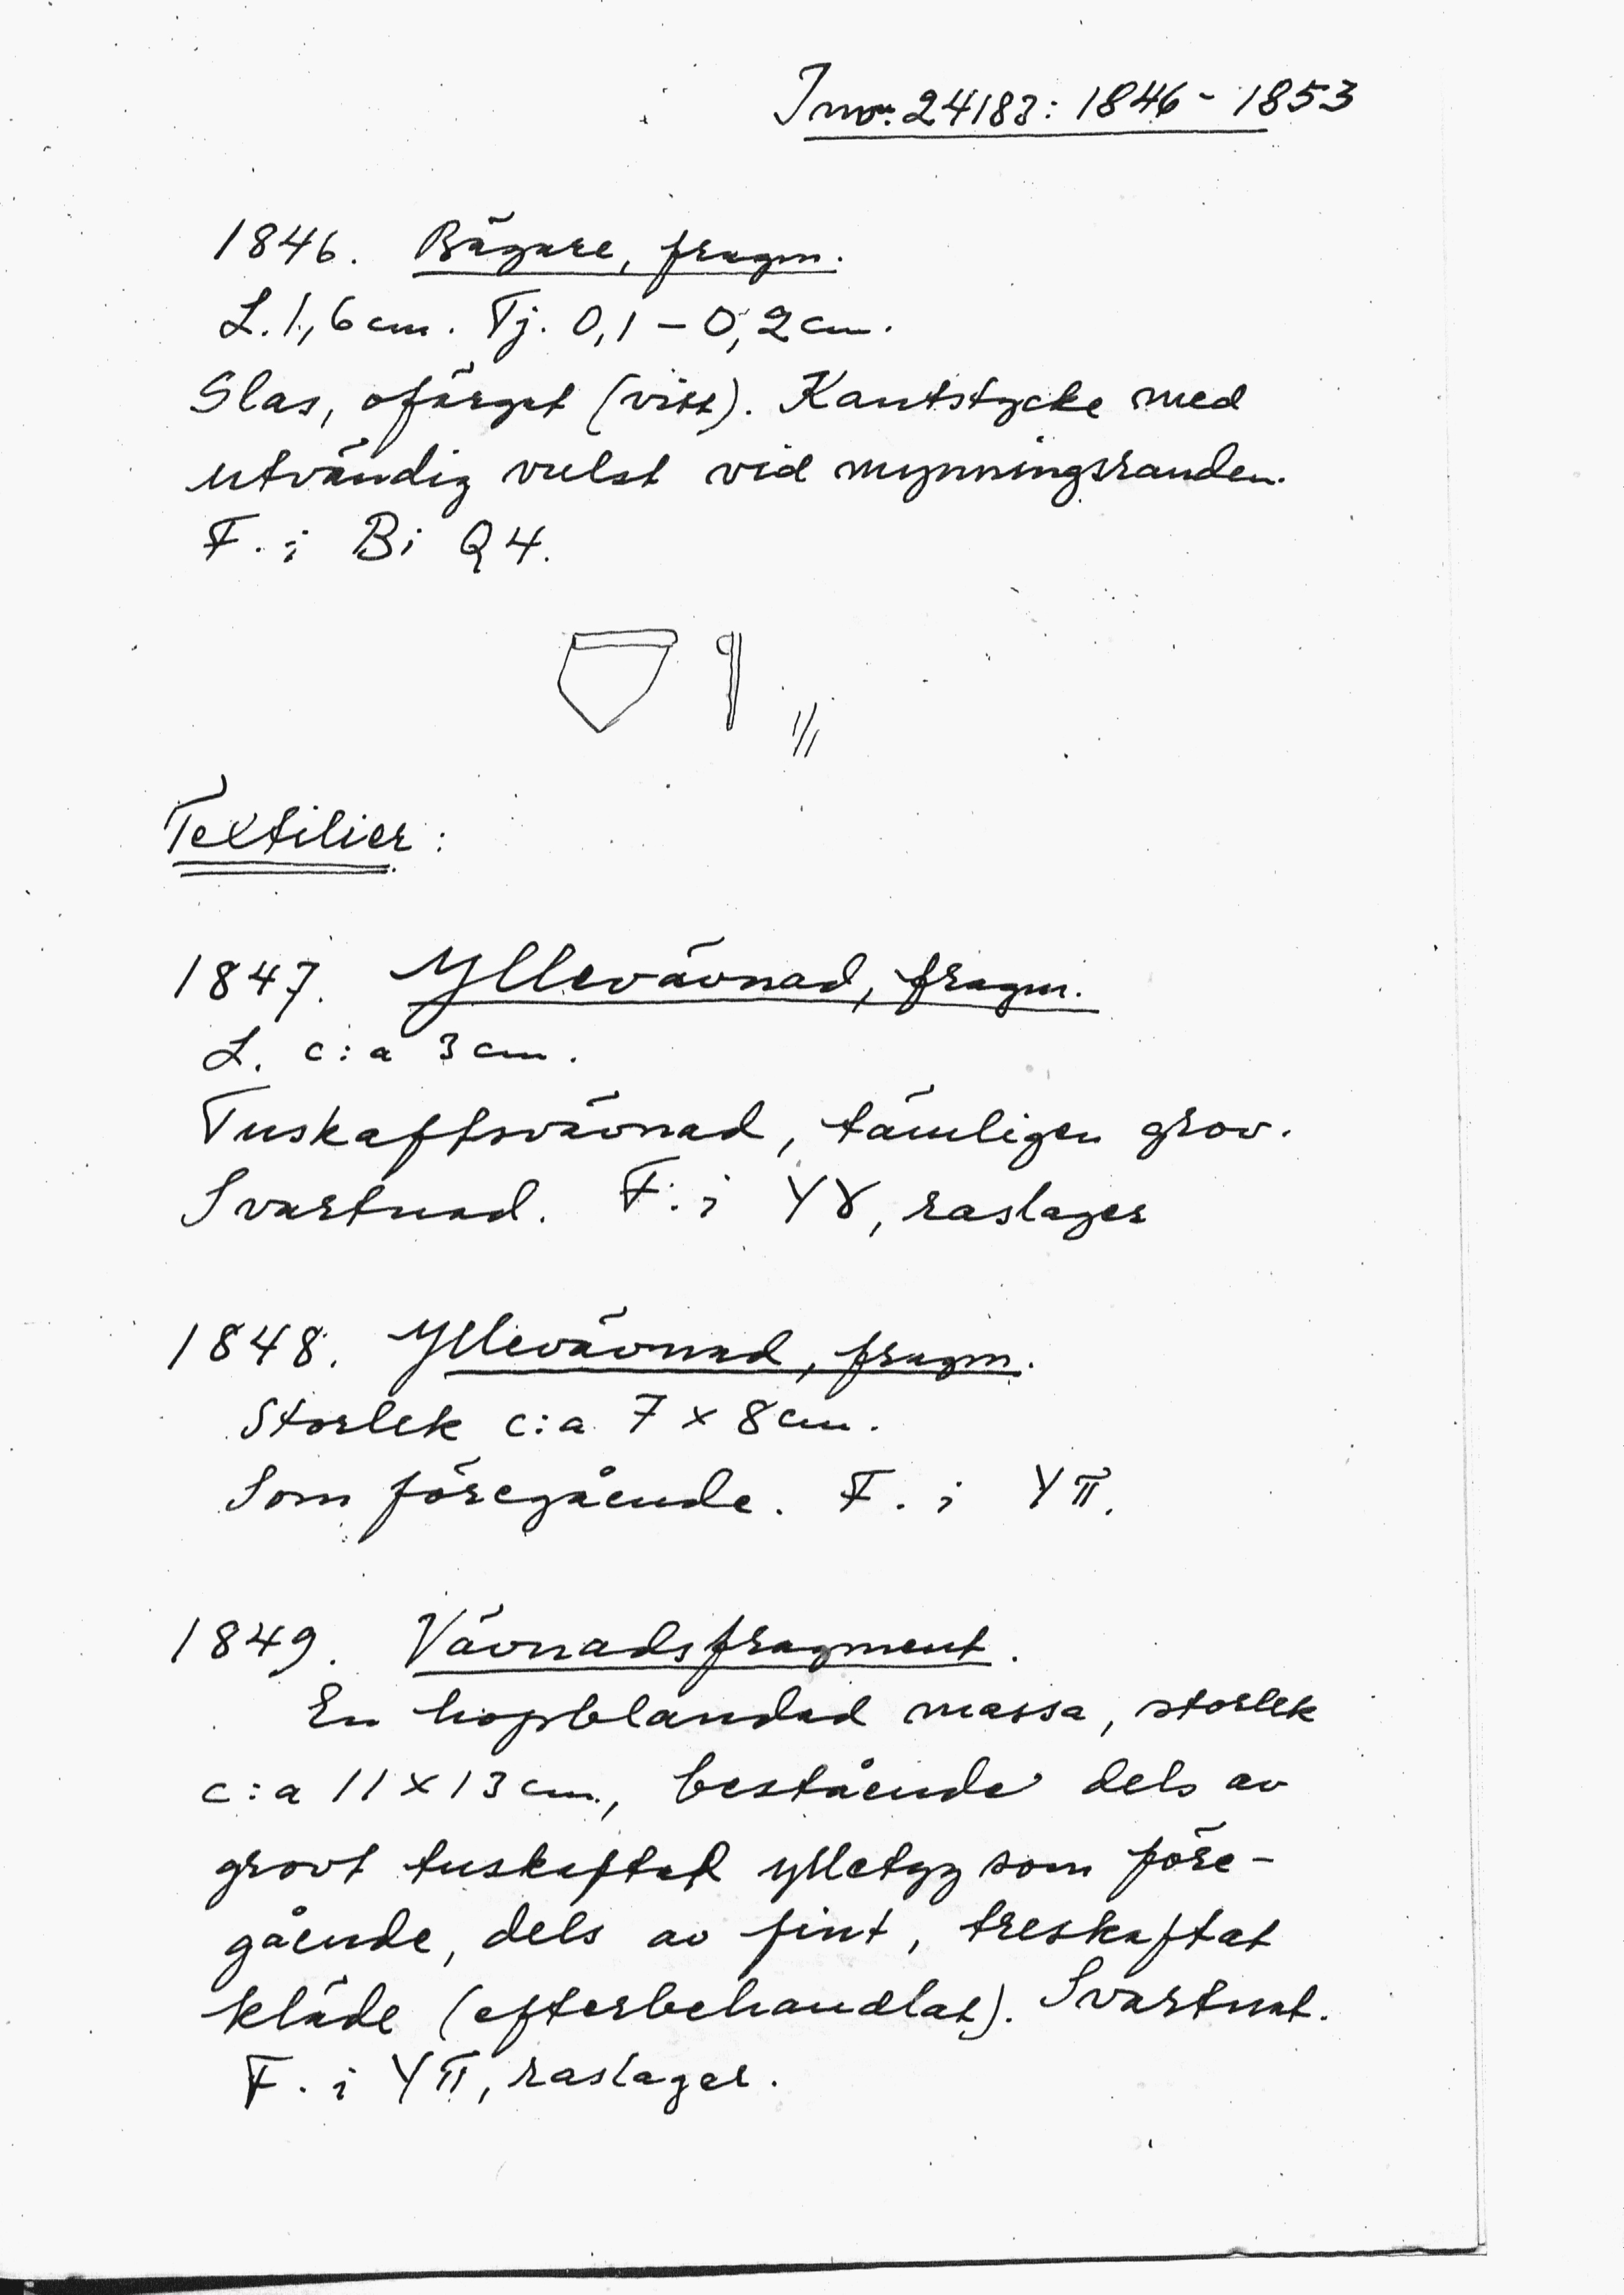 Inv: 24183: 1846 - 1853
1846. Bägare, fragm.
L. 1,6 cm. Tj. 0,1 – 0,2 cm.
Glas, ofärgat (vitt). Kantstycke med
utvändig vulst vid mynningsranden.
F. i Bi Q4.
1/1
Textilier:
1847. Yllevävnad, fragm.
L. c:a 3 cm.
Tuskaftsvävnad, tämligen grov.
Svartnad. F. i Yγ, raslager
1848. Yllevävnad, fragm.
Storlek c:a 7 x 8 cm.
Som föregående. F. i Yπ.
1849. Vävnadsfragment.
En hopblandad massa, storlek
c:a 11 x 13 cm, bestående dels av
grovt tuskaftad ylletyg som före-
gående, dels av fint, treskaftat
kläde (efterbehandlat). Svartnat.
F. i Yπ, raslager.